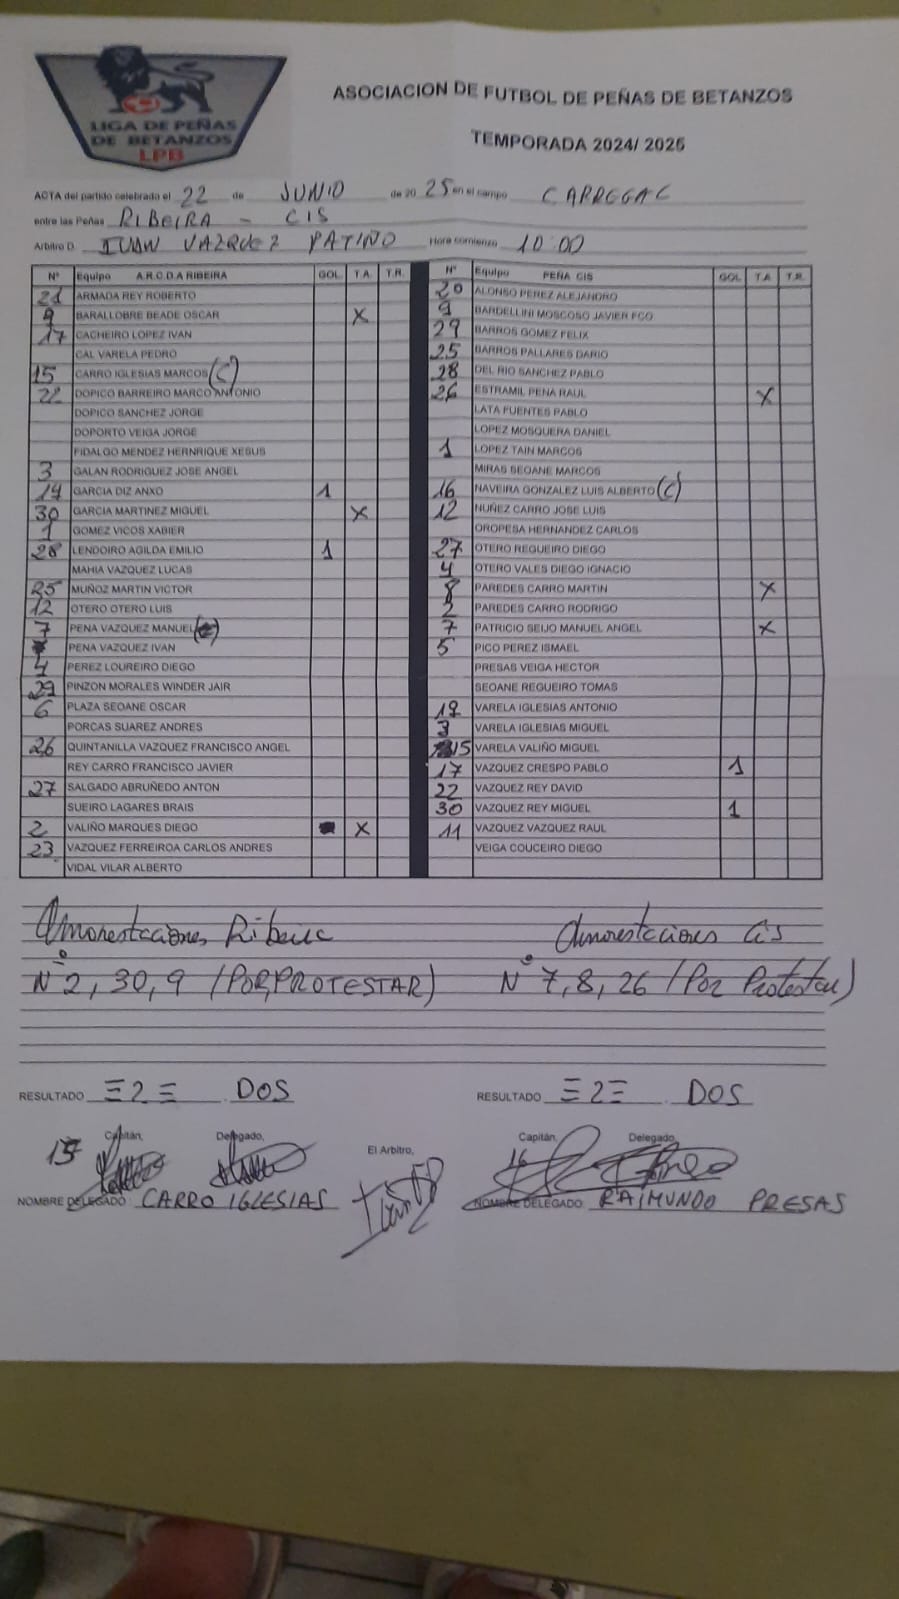 LIGA DE PEÑAS
DE BETANZOS
LPB
ASOCIACION DE FUTBOL DE PEÑAS DE BETANZOS
TEMPORADA 2024/ 2025
ACTA del partido celebrado el 22 de JUNIO de 20 25 en el campo CARREGAL
entre las Peñas RIBEIRA - CIS
Arbitro D. IVAN VAZQUEZ PATIÑO Hora comienzo 10:00
Nº Equipo A.R.C.D.A RIBEIRA GOL T.A. T.R. Nº Equipo PEÑA CIS GOL T.A. T.R.
21 ARMADA REY ROBERTO 20 ALONSO PEREZ ALEJANDRO
9 BARALLOBRE BEADE OSCAR X 9 BARDELLINI MOSCOSO JAVIER FCO
17 CACHEIRO LOPEZ IVAN 29 BARROS GOMEZ FELIX
CAL VARELA PEDRO 25 BARROS PALLARES DARIO
15 CARRO IGLESIAS MARCOS (C) 28 DEL RIO SANCHEZ PABLO
22 DOPICO BARREIRO MARCO ANTONIO 26 ESTRAMIL PENA RAUL X
DOPICO SANCHEZ JORGE LATA FUENTES PABLO
DOPORTO VEIGA JORGE LOPEZ MOSQUERA DANIEL
FIDALGO MENDEZ HERNRIQUE XESUS 1 LOPEZ TAIN MARCOS
3 GALAN RODRIGUEZ JOSE ANGEL MIRAS SEOANE MARCOS
14 GARCIA DIZ ANXO 1 16 NAVEIRA GONZALEZ LUIS ALBERTO (C)
30 GARCIA MARTINEZ MIGUEL X 12 NUÑEZ CARRO JOSE LUIS
1 GOMEZ VICOS XABIER OROPESA HERNANDEZ CARLOS
28 LENDOIRO AGILDA EMILIO 1 27 OTERO REGUEIRO DIEGO
MAHIA VAZQUEZ LUCAS 4 OTERO VALES DIEGO IGNACIO
25 MUÑOZ MARTIN VICTOR 8 PAREDES CARRO MARTIN X
12 OTERO OTERO LUIS 2 PAREDES CARRO RODRIGO
7 PENA VAZQUEZ MANUEL 7 PATRICIO SEIJO MANUEL ANGEL X
PENA VAZQUEZ IVAN 5 PICO PEREZ ISMAEL
4 PEREZ LOUREIRO DIEGO PRESAS VEIGA HECTOR
29 PINZON MORALES WINDER JAIR SEOANE REGUEIRO TOMAS
6 PLAZA SEOANE OSCAR 19 VARELA IGLESIAS ANTONIO
PORCAS SUAREZ ANDRES 3 VARELA IGLESIAS MIGUEL
26 QUINTANILLA VAZQUEZ FRANCISCO ANGEL 15 VARELA VALIÑO MIGUEL
REY CARRO FRANCISCO JAVIER 17 VAZQUEZ CRESPO PABLO 1
27 SALGADO ABRUÑEDO ANTON 22 VAZQUEZ REY DAVID
SUEIRO LAGARES BRAIS 30 VAZQUEZ REY MIGUEL 1
2 VALIÑO MARQUES DIEGO X 11 VAZQUEZ VAZQUEZ RAUL
23 VAZQUEZ FERREIROA CARLOS ANDRES VEIGA COUCEIRO DIEGO
VIDAL VILAR ALBERTO
Amonestaciones Ribeira Amonestaciones Cis
Nº 2, 30, 9 (POR PROTESTAR) Nº 7, 8, 26 (Por Protestar)
RESULTADO =2= DOS RESULTADO =2= DOS
Capitán, Delegado, El Arbitro, Capitán, Delegado,
15 16
NOMBRE DELEGADO: CARRO IGLESIAS NOMBRE DELEGADO: RAIMUNDO PRESAS